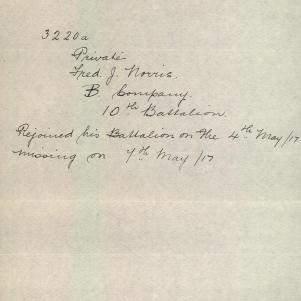 3220a
Private
Fred. J. Norris.
B Company.
10th Battalion.
Rejoined his Battalion on the 4th May/17
missing on 7th May/17